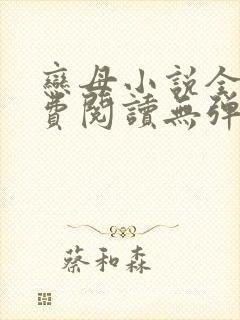 戀母小說全
費閱讀無彈
蔡和森